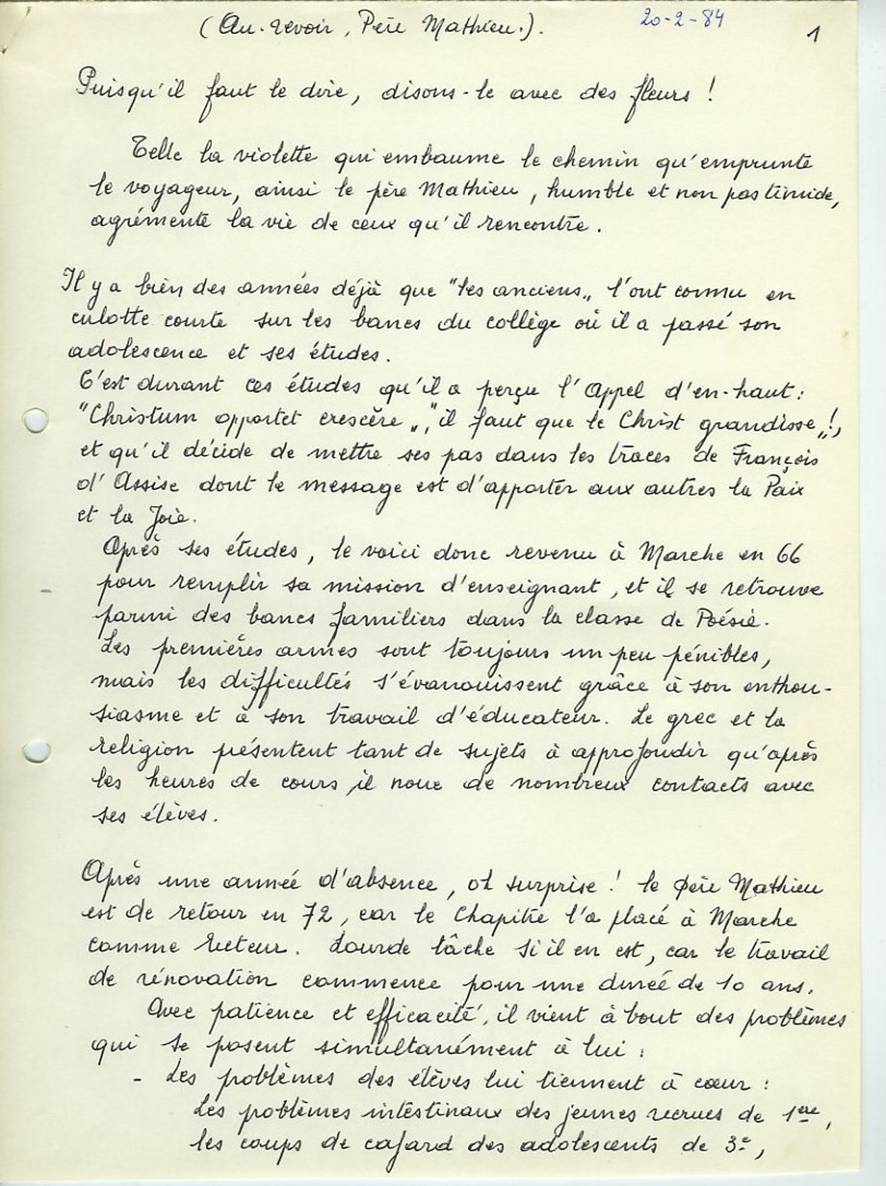 (Au-revoir, Père Mathieu.).
20-2-84
1
Puisqu'il faut le dire, disons-le avec des fleurs !
Telle la violette qui embaume le chemin qu'emprunte
le voyageur, ainsi le père Mathieu, humble et non pas timide,
agrémente la vie de ceux qu'il rencontre.
Il y a bien des années déjà que "les anciens" l'ont connu en
culotte courte sur les bancs du collège où il a passé son
adolescence et ses études.
C'est durant ces études qu'il a perçu l'Appel d'en-haut :
"Christum opportet crescère", "il faut que le Christ grandisse"!,
et qu'il décide de mettre ses pas dans les traces de François
d'Assise dont le message est d'apporter aux autres la Paix
et la Joie.
Après ses études, le voici donc revenu à Marche en 66
pour remplir sa mission d'enseignant, et il se retrouve
parmi des bancs familiers dans la classe de Poésie.
Les premières armes sont toujours un peu pénibles,
mais les difficultés s'évanouissent grâce à son enthou-
siasme et à son travail d'éducateur. Le grec et la
religion présentent tant de sujets à approfondir qu'après
les heures de cours, il noue de nombreux contacts avec
ses élèves.
Après une année d'absence, oh surprise ! le père Mathieu
est de retour en 72, car le Chapitre l'a placé à Marche
comme Recteur. Lourde tâche s'il en est, car le travail
de rénovation commence pour une durée de 10 ans.
Avec patience et efficacité, il vient à bout des problèmes
qui se posent simultanément à lui :
- Les problèmes des élèves lui tiennent à cœur :
Les problèmes intestinaux des jeunes recrues de 1ère,
les coups de cafard des adolescents de 3e,